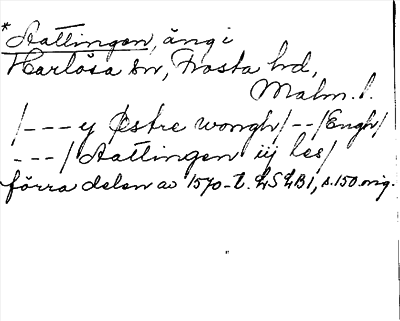 *Aattingen, äng i
Harlösa sn, Frosta hd,
Malm. l.
/--- y Østre wongh/--/Engh/
---/ Aattingen iij les/
förra delen av 1570-t. LSLB1, s. 150 orig.